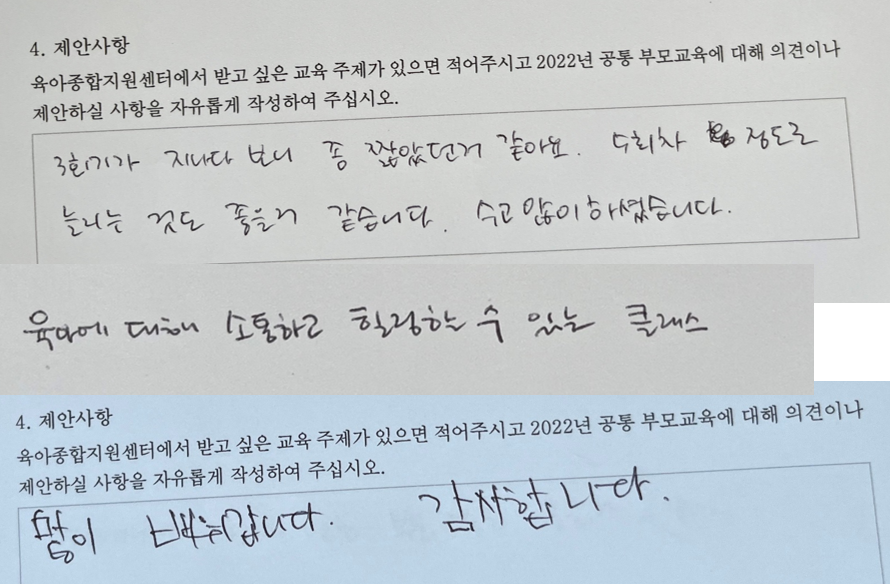 4. 제안사항
육아종합지원센터에서 받고 싶은 교육 주제가 있으면 적어주시고 2022년 공통 부모교육에 대해 의견이나
제안하실 사항을 자유롭게 작성하여 주십시오.
3회기가 지나다 보니 좀 짧았던거 같아요. 정도로
늘리는 것도 좋을거 같습니다. 수고 많이하셨습니다.
육아에 대해 소통하고 힐링하는 수 있는 클래스
4. 제안사항
육아종합지원센터에서 받고 싶은 교육 주제가 있으면 적어주시고 2022년 공통 부모교육에 대해 의견이나
제안하실 사항을 자유롭게 작성하여 주십시오.
많이 배워갑니다. 감사합니다.